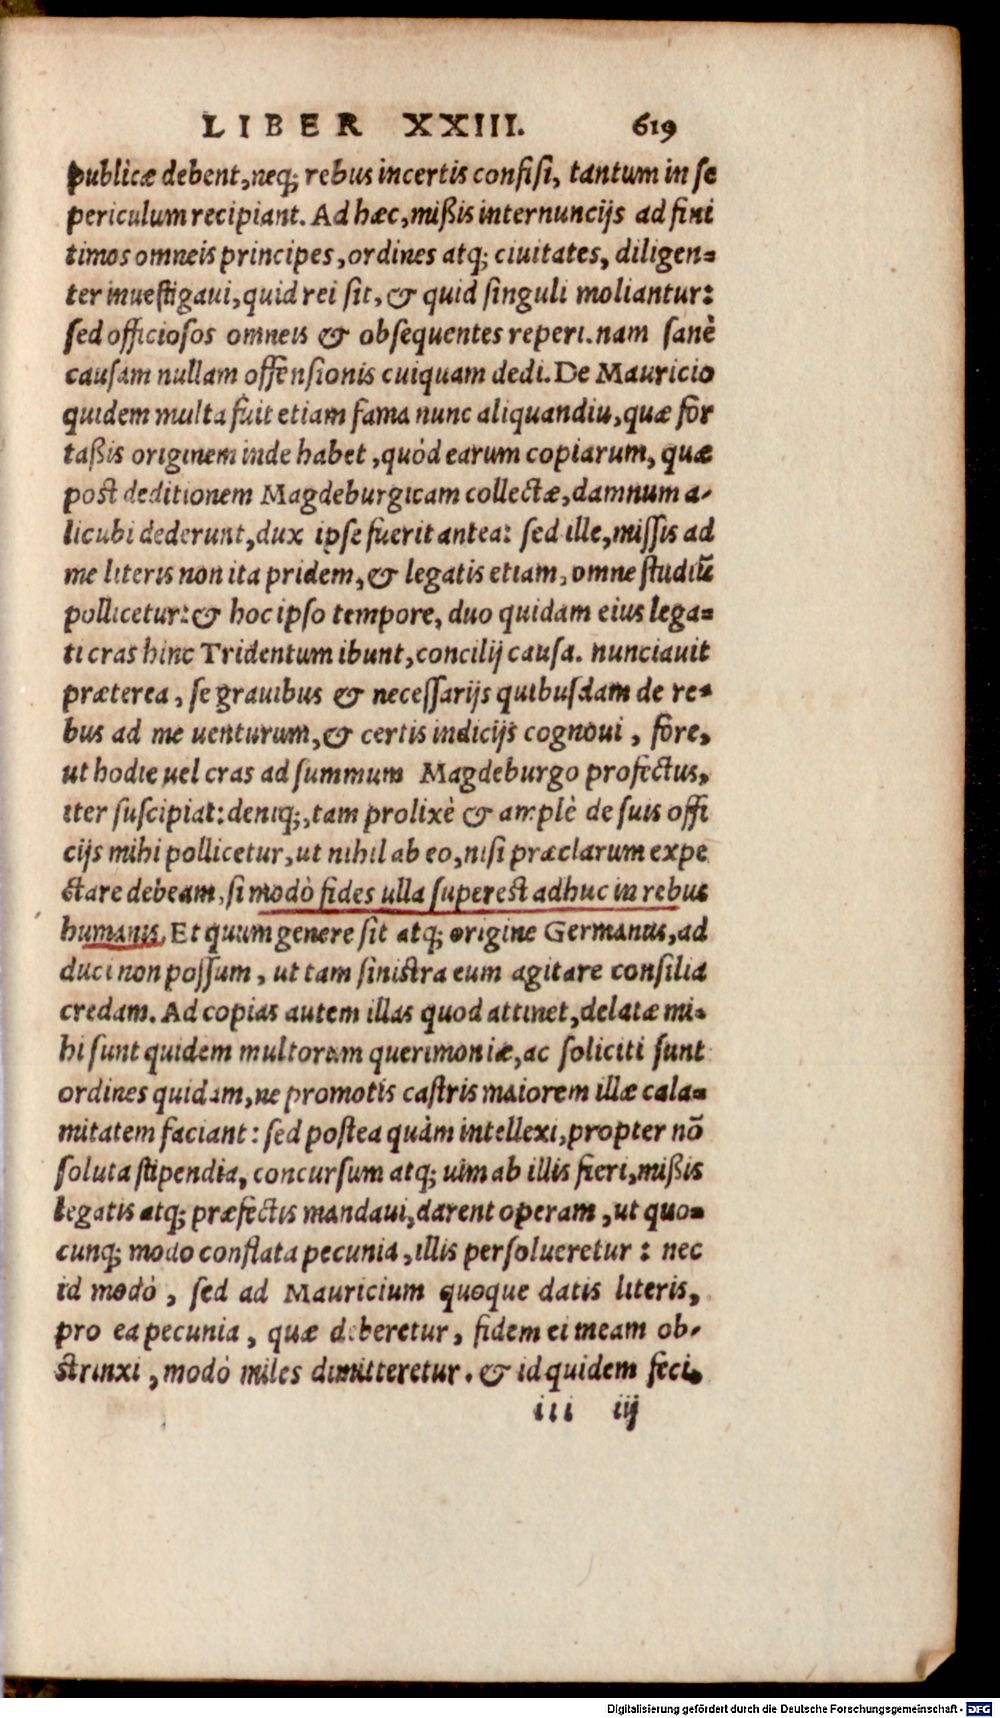 LIBER XXIII. 619
publicæ debent, neq; rebus incertis confisi, tantum in se
periculum recipiant. Ad hæc, mißis internuncijs ad fini
timos omneis principes, ordines atq; ciuitates, diligen=
ter inuestigaui, quid rei sit, & quid singuli moliantur:
sed officiosos omneis & obsequentes reperi. nam sanè
causam nullam offensionis cuiquam dedi. De Mauricio
quidem multa fuit etiam fama nunc aliquandiu, quæ for
taßis originem inde habet, quòd earum copiarum, quæ
post deditionem Magdeburgicam collectæ, damnum a-
licubi dederunt, dux ipse fuerit antea: sed ille, missis ad
me literis non ita pridem, & legatis etiam, omne studiũ
pollicetur: & hoc ipso tempore, duo quidam eius lega=
ti cras hinc Tridentum ibunt, concilij causa. nunciauit
præterea, se grauibus & necessarijs quibusdam de re=
bus ad me uenturum, & certis indicijs cognoui, fore,
ut hodie uel cras ad summum Magdeburgo profectus,
iter suscipiat: deniq;, tam prolixè & amplè de suis offi
cijs mihi pollicetur, ut nihil ab eo, nisi præclarum expe
ctare debeam, si modò fides ulla superest adhuc in rebus
humanis. Et quum genere sit atq; origine Germanus, ad
duci non possum, ut tam sinistra eum agitare consilia
credam. Ad copias autem illas quod attinet, delatæ mi=
hi sunt quidem multorum querimoniæ, ac soliciti sunt
ordines quidam, ne promotis castris maiorem illæ cala=
mitatem faciant: sed postea quàm intellexi, propter nõ
soluta stipendia, concursum atq; uim ab illis fieri, mißis
legatis atq; præfectis mandaui, darent operam, ut quo=
cunq; modo conflata pecunia, illis persolueretur: nec
id modò, sed ad Mauricium quoque datis literis,
pro ea pecunia, quæ deberetur, fidem ei meam ob-
strinxi, modò miles dimitteretur. & id quidem feci,
iii iij
Digitalisierung gefördert durch die Deutsche Forschungsgemeinschaft - DFG